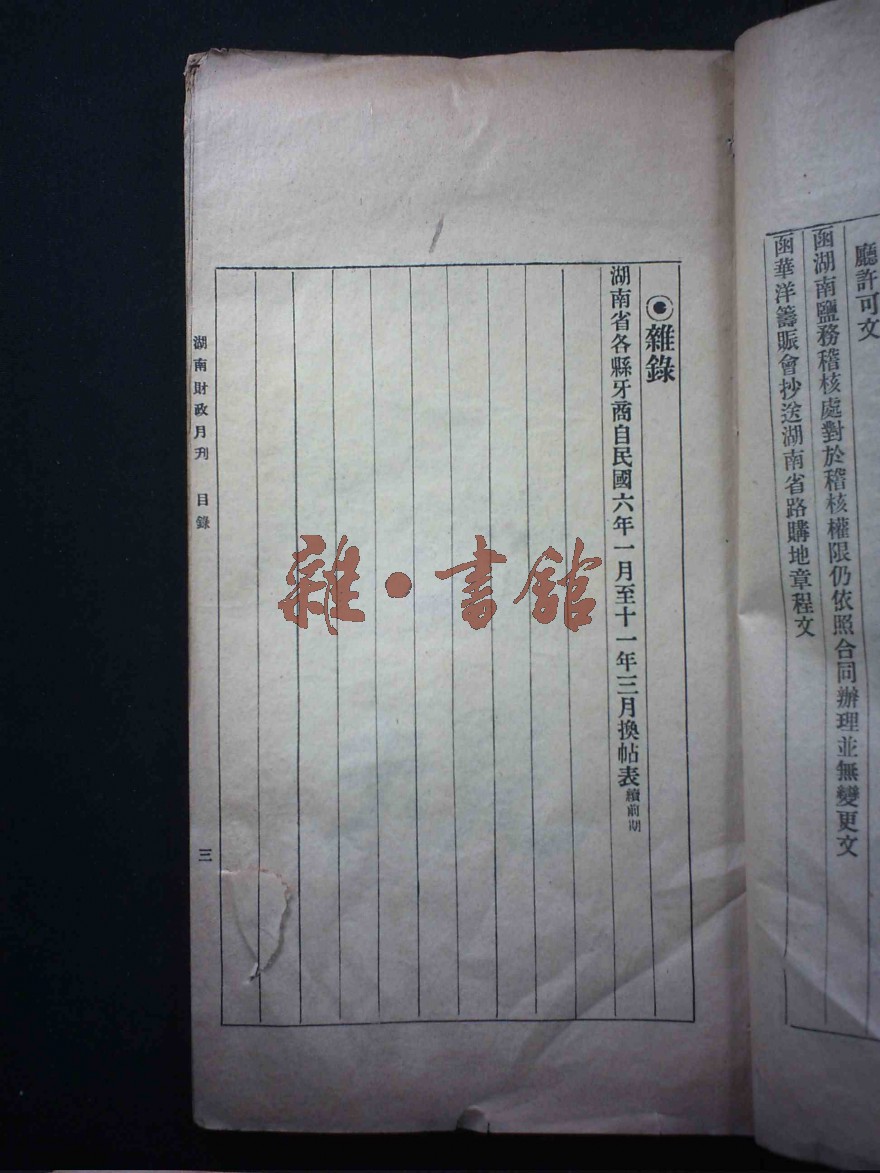 廳許可文
函湖南鹽務稽核處對於稽核權限仍依照合同辦理並無變更文
函華洋籌賑會抄送湖南省路購地章程文
◉雜錄
湖南省各縣牙商自民國六年一月至十一年三月換帖表續前期
湖南財政月刋 目錄
三
雜·書館